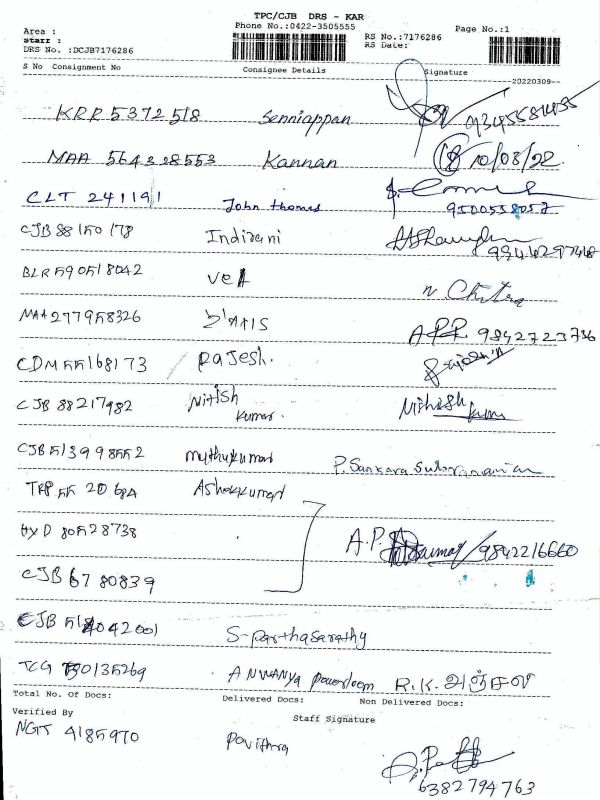 TPC/CJB DRS - KAR
Phone No.:0422-3505555
Area :
Staff :
DRS No. :DCJB7176286
RS No.:7176286
RS Date:
Page No.:1
S No Consignment No Consignee Details Signature
--20220309--
KRR 5372518 Senniappan 9345581435
MAA 564328553 Kannan 10/03/22
CLT 241191 John thomas 9500558057
CJB 88150178 Indirani
BLR 590518042 Vel N Chitra
MAA 277958326 9842723736
CDM 55168173 Rajesh.
CJB 88217982 Nitish kumar.
CJB 513998552 Muthukumar P. Sankara Subramanian
TRP 55 20684 Ashokkumar
HYD 80528738 A.P. 9842216660
CJB 6780839
CJB 4042001 S-Parthasarathy
TCG 0135269 ANWANYa Powerloom R.K. அஞ்சலி
Total No. Of Docs: Delivered Docs: Non Delivered Docs:
Verified By Staff Signature
NGT 4185970 Pavithra
6382794763